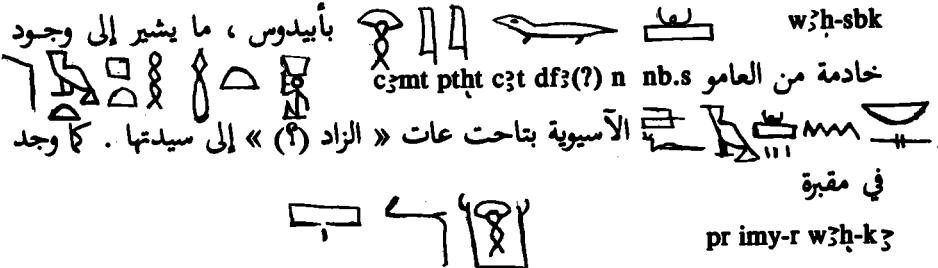 wȝḥ-sbk بأبيدوس ، ما يشير إلى وجود
خادمة من العامو cȝmt ptḥt cȝt dfȝ(?) n nb.s
الآسيوية بتاحت عات « الزاد (؟) » إلى سيدتها . كما وجد
في مقبرة
pr imy-r wȝḥ-kȝ